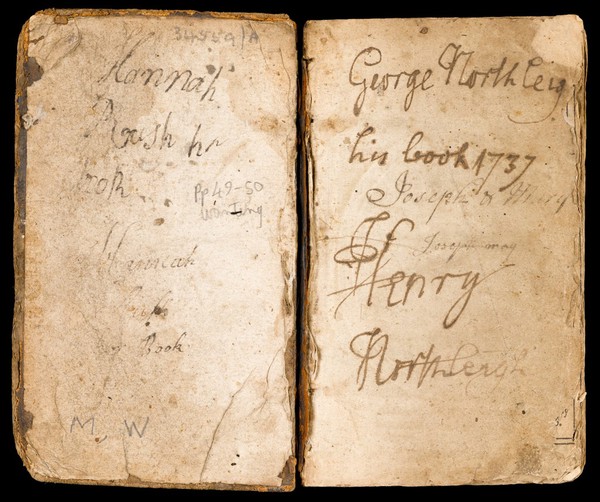 34559/A
Hannah
Rush hr
Book
Pp 49-50
wanting
Hannah
Rush
Book
M. W
George Northleig
his book 1737
Joseph
Joseph
Henry
Northleigh